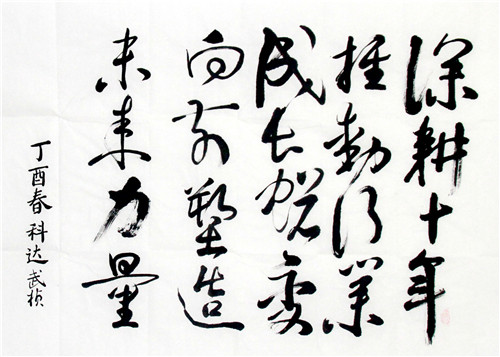 深耕十年
推動行業
成长蜕变
向前塑造
未来力量
丁酉春 科达 武桢